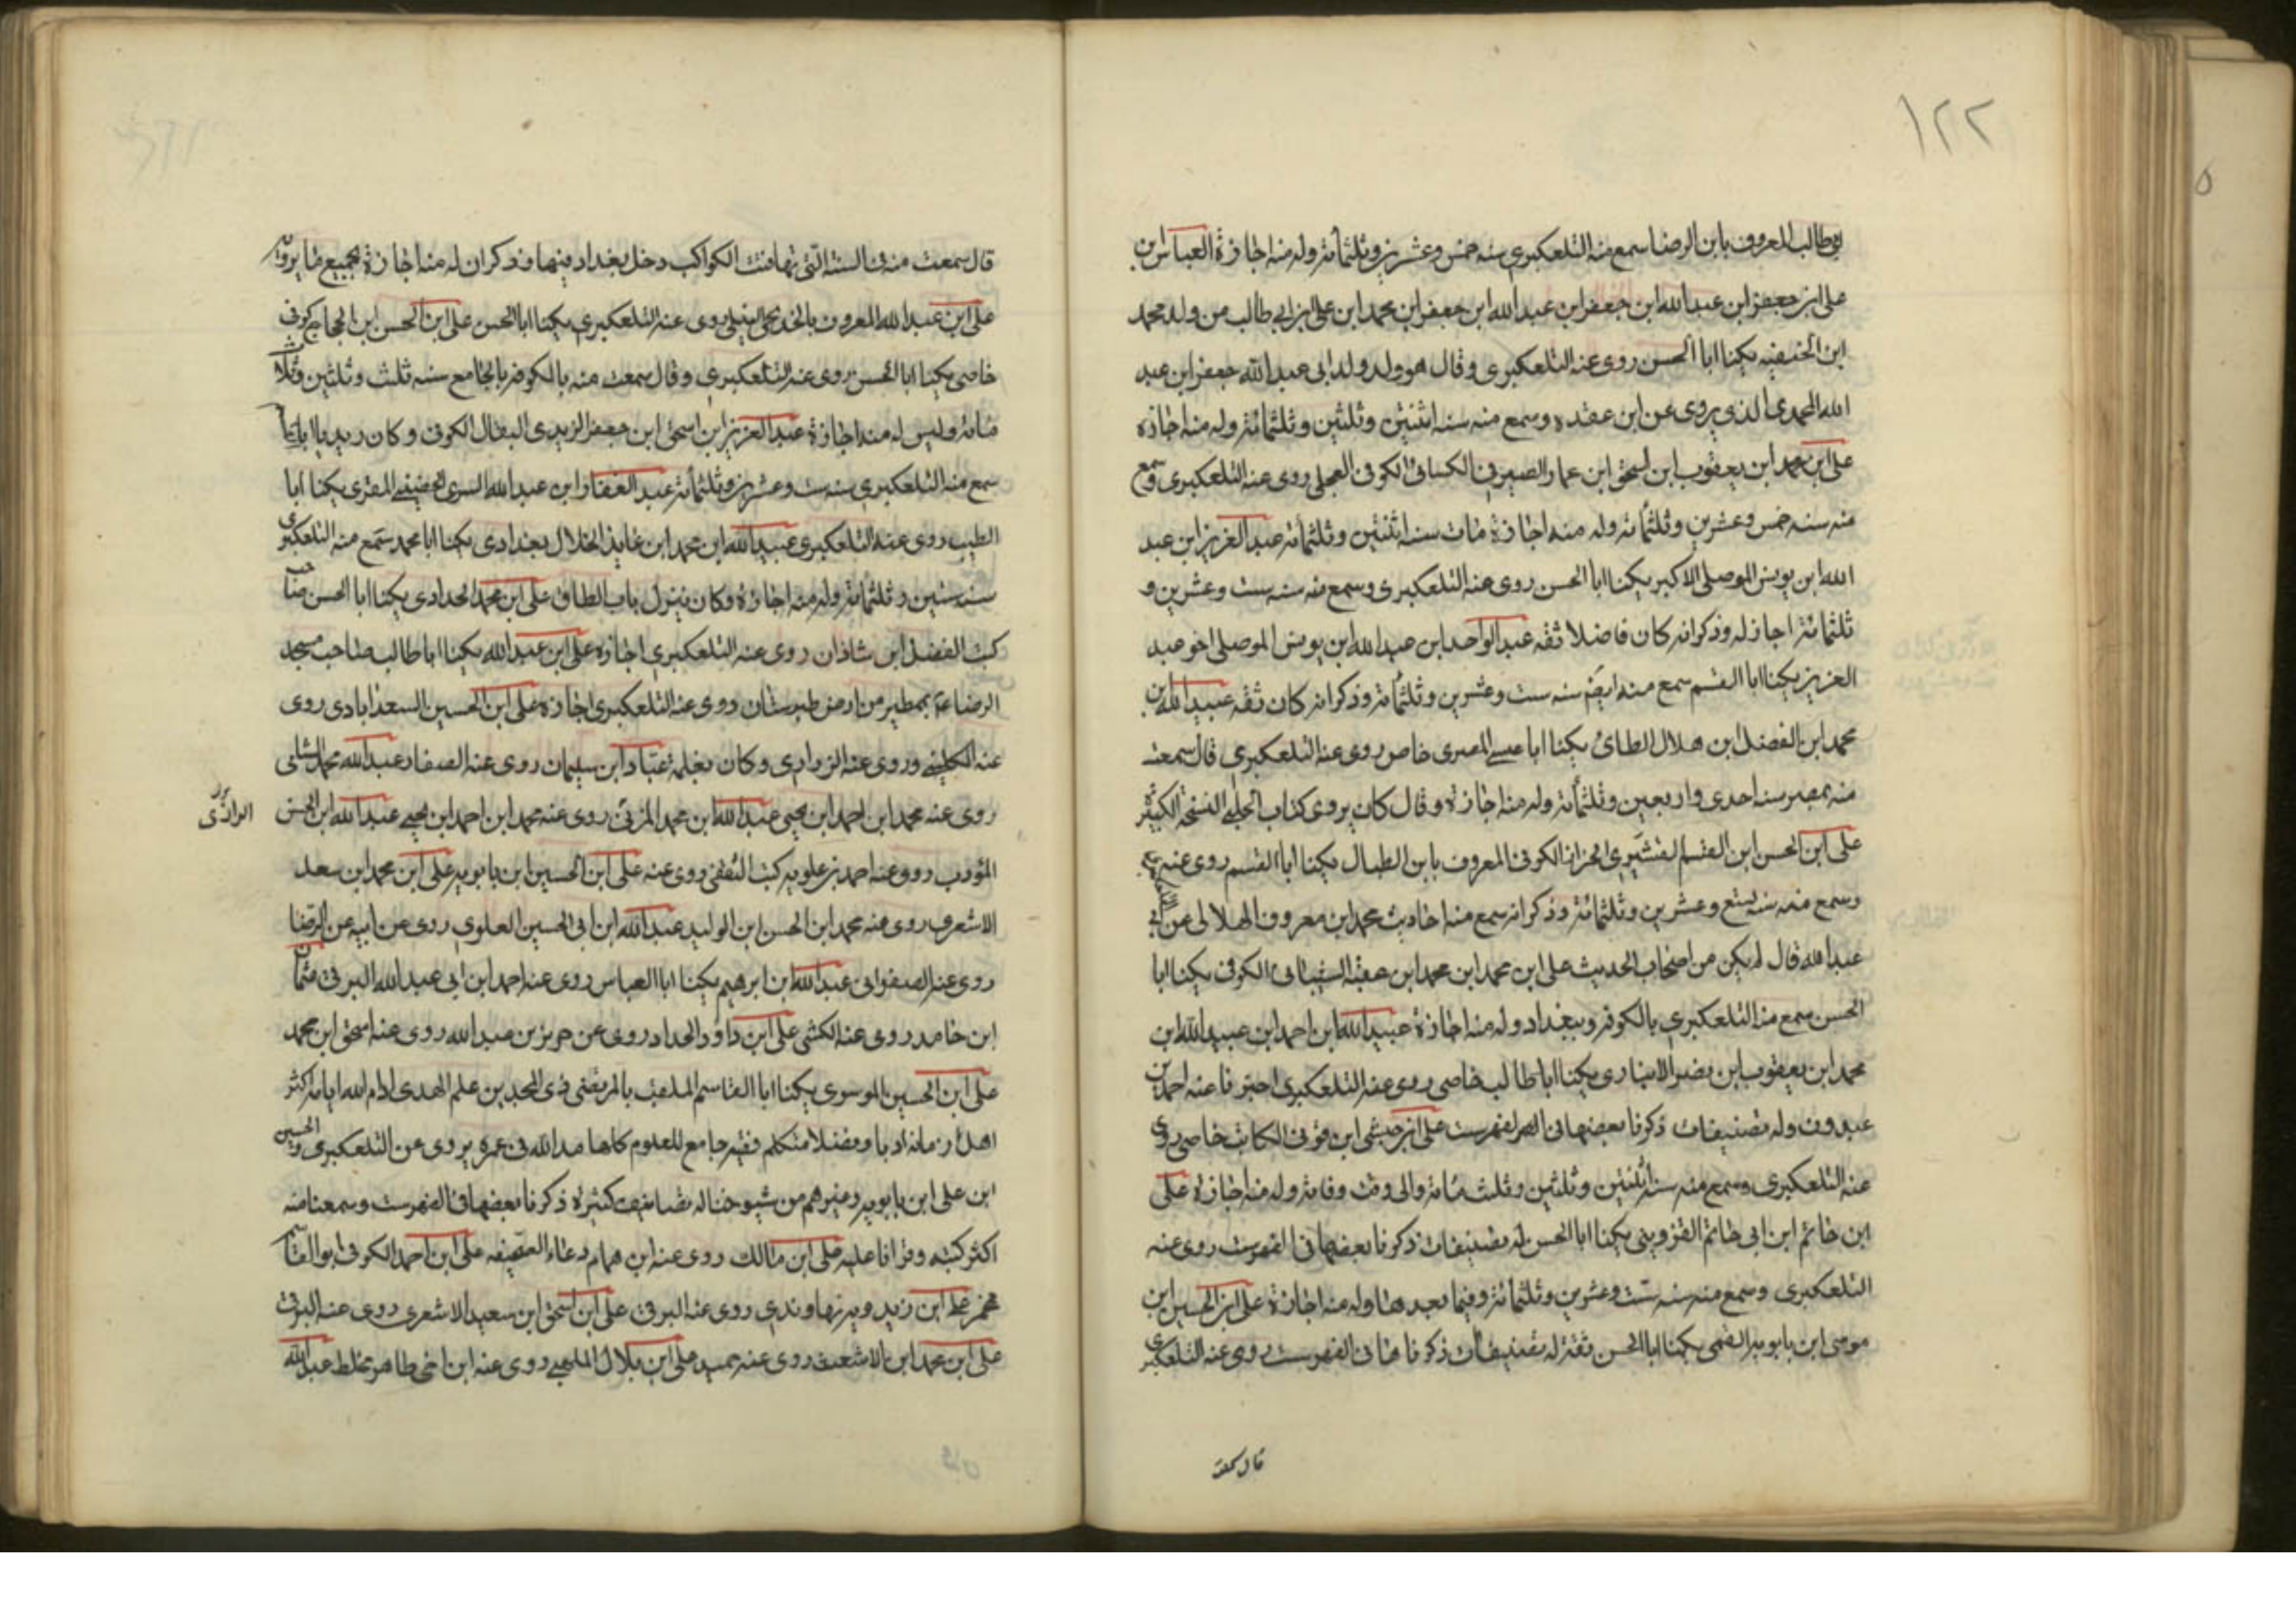 ١٢٢
ابى طالب المعروف بابن الرضا سمع منه التلعكبرى سنه خمس وعشرين وثلثمائه وله منه اجازة العباس ابن
على ابن جعفر ابن عبدالله ابن جعفر ابن عبدالله ابن جعفر ابن محمد ابن على ابن ابى طالب من ولد محمد
ابن الحنفيه يكنا ابا الحسن روى عنه التلعكبرى وقال هو ولد ولد ابى عبدالله جعفر ابن عبد
الله المحمدى الذى يروى عن ابن عقده وسمع منه سنه اثنتين وثلثين وثلثمائة وله منه اجازه
على ابن محمد ابن يعقوب ابن اسحق ابن عمار الصيرفى الكسائى الكوفى العجلى روى عنه التلعكبرى وسمع
منه سنه خمس وعشرين وثلثمائه وله منه اجازة مات سنه اثنتين وثلثمائه عبد العزيز ابن عبد
الله ابن يونس الموصلى الاكبر يكنا ابا الحسن روى عنه التلعكبرى وسمع منه سنه ست وعشرين و
ثلثمائة اجاز له وذكر انه كان فاضلا ثقه عبد الواحد ابن عبدالله ابن يونس الموصلى اخو عبد
العزيز يكنا ابا القسم سمع منه ايضا سنه ست وعشرين وثلثمائة وذكر انه كان ثقه عبيدالله ابن
محمد ابن الفضل ابن هلال الطائى يكنا ابا عيسى المصرى خاص روى عنه التلعكبرى قال سمعت
منه بمصر سنه احدى واربعين وثلثمائة وله منه اجازة وقال كان يروى كتاب الحلبى النسخة الكبيرة
على ابن الحسن ابن القسم القشيرى الخزاز الكوفى المعروف بابن الطبال يكنا ابا القسم روى عنه
وسمع منه سنه تسع وعشرين وثلثمائة وذكر انه سمع منه احاديث محمد ابن معروف الهلالى عن ابى
عبدالله قال لم يكن من اصحاب الحديث على ابن محمد ابن محمد ابن عقبه الشيبانى الكوفى يكنا ابا
الحسن سمع منه التلعكبرى بالكوفه وببغداد وله منه اجازة عبيدالله ابن احمد ابن عبيدالله ابن
محمد ابن يعقوب ابن نصر الانبارى يكنا ابا طالب خاصى روى عنه التلعكبرى اخبرنا عنه احمد بن
عبدون وله تصنيفات ذكرنا بعضها فى الفهرست على ابن حبشى ابن قونى الكاتب خاصى روى
عنه التلعكبرى وسمع منه سنه اثنتين وثلثين وثلث مائة والى وقت وفاته وله منه اجازة على
ابن حاتم ابن ابى حاتم القزوينى يكنا ابا الحسن له تصنيفات ذكرنا بعضها فى الفهرست روى عنه
التلعكبرى وسمع منه سنه ست وعشرين وثلثمائة وفيما بعدها وله منه اجازة على ابن الحسين ابن
موسى ابن بابويه القمى يكنا ابا الحسن ثقة له تصنيفات ذكرنا ها فى الفهرست روى عنه التلعكبرى
قال سمعت
قال سمعت منه فى السنة التى تهافتت الكواكب دخل بغداد فيها وذكر ان له منه اجازة بجميع ما يرويه
على ابن عبدالله المعروف روى عنه التلعكبرى يكنا ابا الحسن على ابن الحسن ابن الحجاج كوفى
خاصى يكنا ابا الحسن روى عنه التلعكبرى وقال سمعت منه بالكوفه بالجامع سنه ثلث وثلثين وثلث
مائة وليس له منه اجازة عبد العزيز ابن اسحق ابن جعفر الزيدى البقال الكوفى وكان زيديا
سمع منه التلعكبرى سنه ست وعشرين وثلثمائة عبد الغفار ابن عبدالله السرى الحضينى المقرى يكنا ابا
الطيب روى عنه التلعكبرى عبيدالله ابن محمد ابن عايذ الخلال بغدادى يكنا ابا محمد سمع منه التلعكبرى
سنه ستين وثلثمائة وله منه اجازة وكان ينزل باب الطاق على ابن محمد الحدادى يكنا ابا الحسن صاحب
كتب الفضل ابن شاذان روى عنه التلعكبرى اجازه على ابن عبدالله يكنا ابا طالب صاحب مسجد
الرضا ع بمطير من ارض طبرستان روى عنه التلعكبرى اجازة على ابن الحسين السعدابادى روى
عنه الكلينى وروى عنه الزرارى وكان معلمه عباد ابن سليمان روى عنه الصفار عبدالله محمد الشامى
روى عنه محمد ابن احمد ابن يحيى عبدالله ابن محمد روى عنه محمد ابن احمد ابن يحيى عبدالله ابن الحسن
المؤدب روى عنه احمد بن علويه كتب الثقفى روى عنه على ابن الحسين ابن بابويه على ابن محمد ابن سعد
الاشعرى روى عنه محمد ابن الحسن ابن الوليد عبدالله ابن ابى الحسين العلوى روى عن ابيه عن الرضا
روى عنه الصفوانى عبدالله ابن ابرهيم يكنا ابا العباس روى عنه احمد ابن ابى عبدالله البرقى عثمان
ابن حامد روى عنه الكشى على ابن داود الحداد روى عن حريز بن عبدالله روى عنه اسحق ابن محمد
على ابن الحسين الموسوى يكنا ابا القاسم الملقب بالمرتضى ذى المجدين علم الهدى ادام الله ايامه اكثر
اهل زمانه ادبا وفضلا متكلم فقيه جامع للعلوم كلها مد الله فى عمره يروى عن التلعكبرى والحسين
ابن على ابن بابويه وغيرهم من شيوخنا له تصانيف كثيرة ذكرنا بعضها فى الفهرست وسمعنا منه
اكثر كتبه وقرأناها عليه على ابن مالك روى عنه ابن همام دعاء الصحيفه على ابن احمد الكوفى ابوالقاسم
مخمس على ابن زيدويه نهاوندى روى عنه البرقى على ابن اسحق ابن سعيد الاشعرى روى عنه البرقى
على ابن محمد ابن الاشعث روى عنه حميد على ابن بلال المهلبى روى عنه ابن اخى طاهر مخلط عبدالله